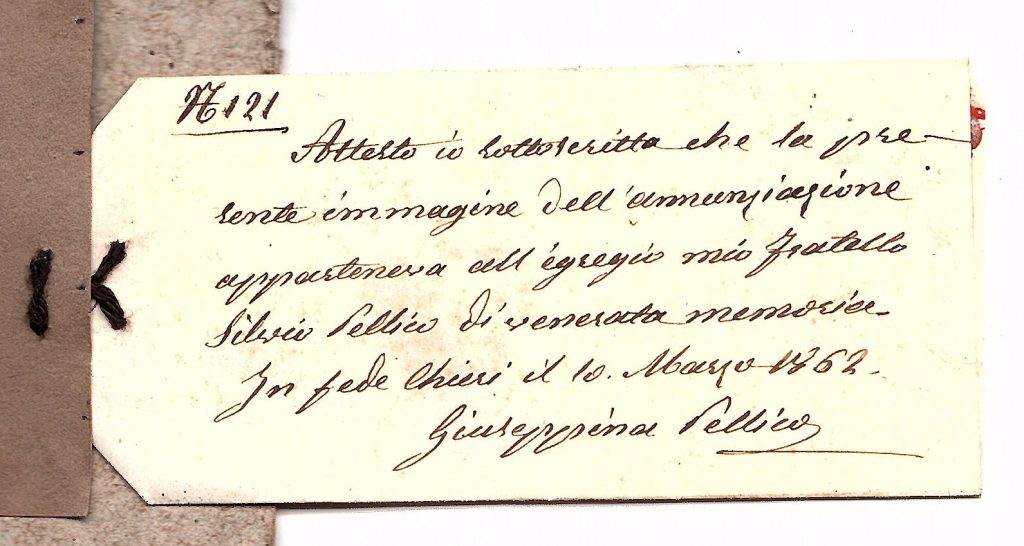 N 121
Attesto io sottoscritta che la pre-
sente immagine dell'annunziazione
apparteneva all'egregio mio fratello
Silvio Pellico di venerata memoria.
In fede Chieri il 10. Marzo 1862.
Giuseppina Pellico